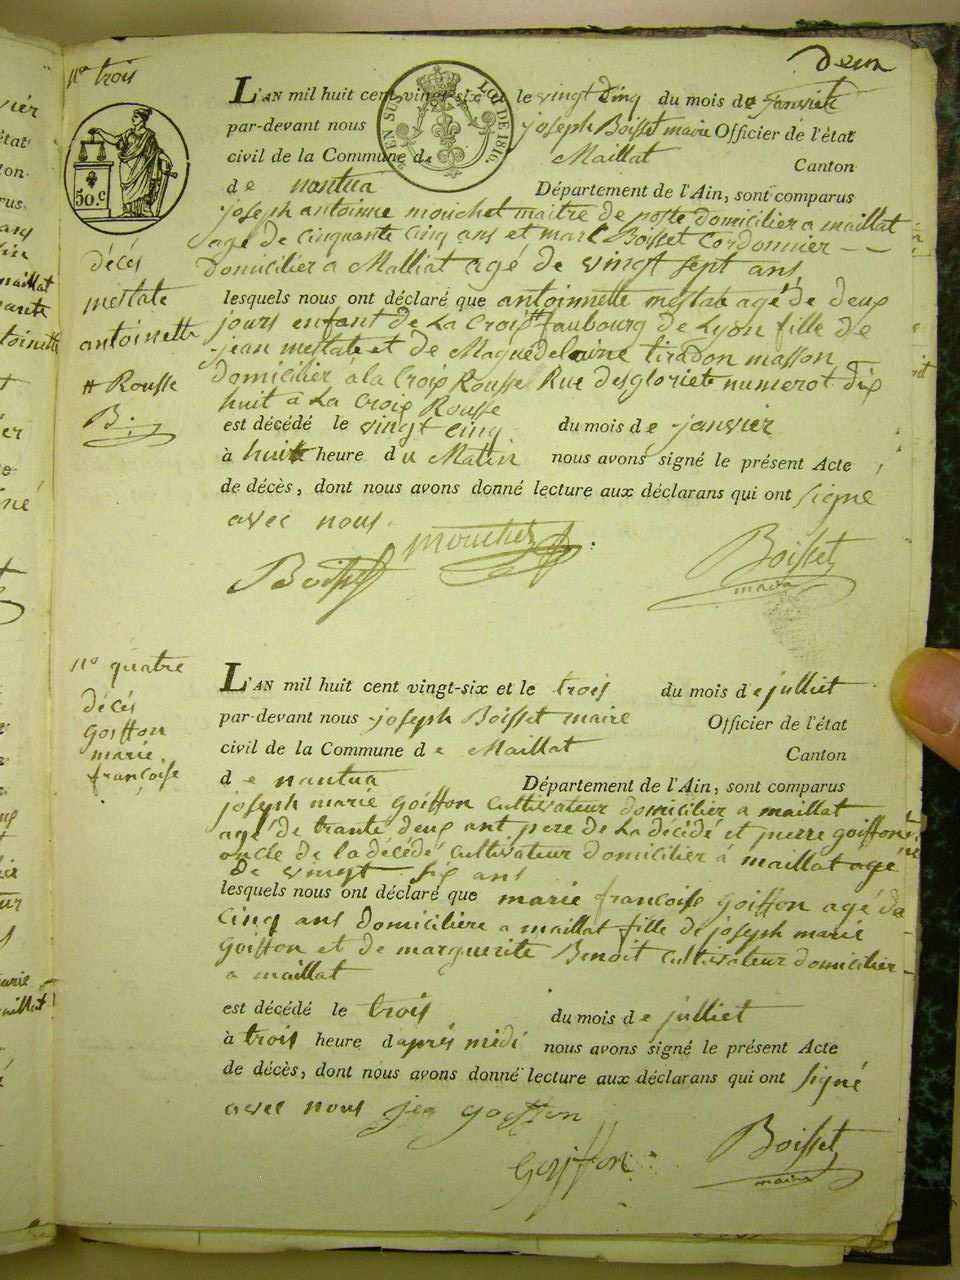 deux
nº trois
L'AN mil huit cent vingt-six et le vingt cinq du mois de janvier
par-devant nous joseph Boisset maire Officier de l'état
civil de la Commune de Maillat Canton
de nantua Département de l'Ain, sont comparus
joseph antoinne mouchet maitre de poste domicilier a maillat
agé de cinquante cinq ans et marc Boisset cordonnier
domicilier a Malliat agé de vingt sept ans
lesquels nous ont déclaré que antoinnette mestate agé de deux
jours enfant de La Croix # faubourg de Lyon fille de
jean mestate et de Maguedelainne tiradon masson
domicilier à la Croix Rousse Rue des gloriete numerot dix
huit à La Croix Rousse
est décédé le vingt cinq du mois de janvier
à huit heure du Matin nous avons signé le présent Acte
de décès, dont nous avons donné lecture aux déclarans qui ont signé
avec nous.
Boisset mouchet Boisset
maire
décés
mestate
antoinette
# Rousse
B
50.C
EN SUS LOI DE 1816.
nº quatre
décés
Goiffon
marie
françoise
L'AN mil huit cent vingt-six et le trois du mois de julliet
par-devant nous joseph Boisset maire Officier de l'état
civil de la Commune de Maillat Canton
de nantua Département de l'Ain, sont comparus
joseph marie Goiffon cultivateur domicilier a maillat
agé de trante deux ant pere de La décédé et pierre goiffon
oncle de la décédé cultivateur domicilier à maillat agé
de vingt six ans
lesquels nous ont déclaré que marie francoise goiffon agé de
cinq ans domiciliere a maillat fille de joseph marie
Goiffon et de marguerite Benoit cultivateur domicilier
a maillat
est décédé le trois du mois de julliet
à trois heure d'aprés midi nous avons signé le présent Acte
de décès, dont nous avons donné lecture aux déclarans qui ont signé
avec nous goiffon
Goiffon Boisset
maire